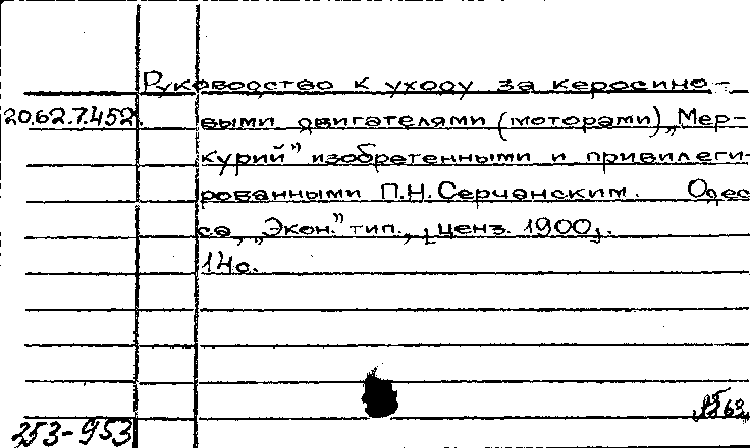 Руководство к уходу за керосино-
20.62.7.452. выми двигателями (моторами) „Мер-
курий” изобретенными и привилеги-
рованными П.Н.Серчанским. Одес
са, „Экон.” тип., [ценз. 1900].
14с.
253-953